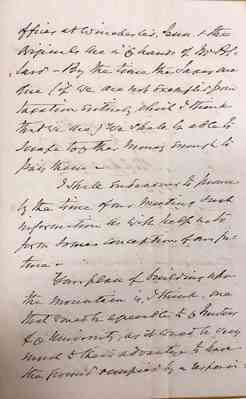 offices at Winchester, Tenn. & the
originals are in the hands of Mr
said - By the time the Taxes are
due (if we are not exempted from
taxation entirely, which I think
that we are) We shall be able to
scrape together money enough to
pay them -
I shall endeavour to procure
by the time of our meeting such
information as will help us to
form some conception of our fu
ture -
Your plan of building upon
the mountain is, I think, one
that must be agreeable to the Trustees
of the University, as it must be very
much to their advantage to have
the ground occupied by a